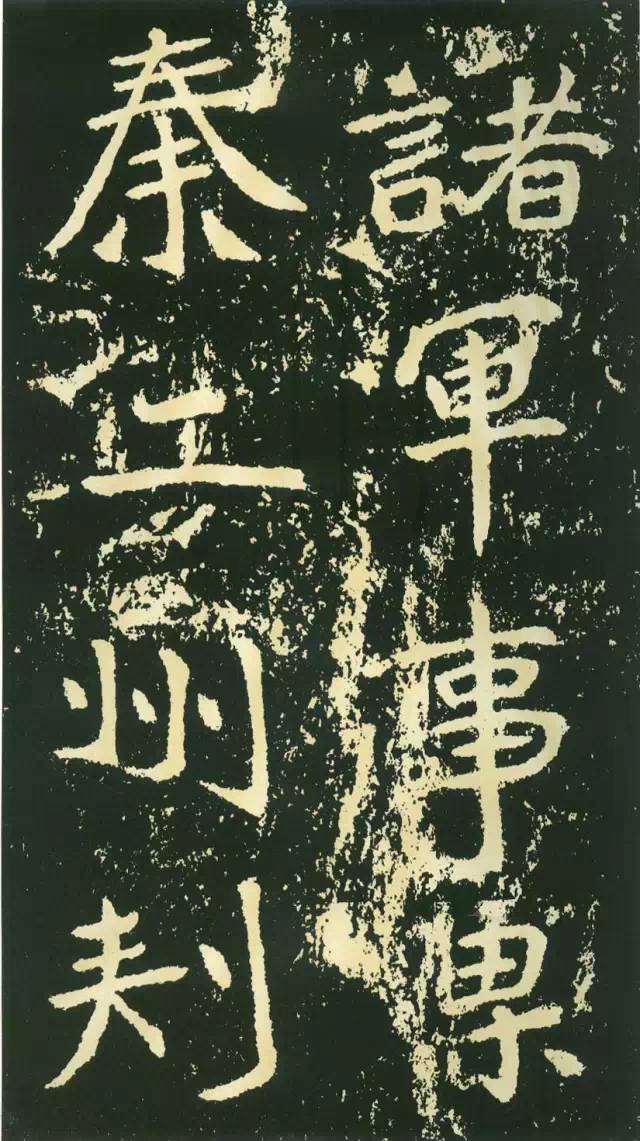 諸軍事
秦
州刺